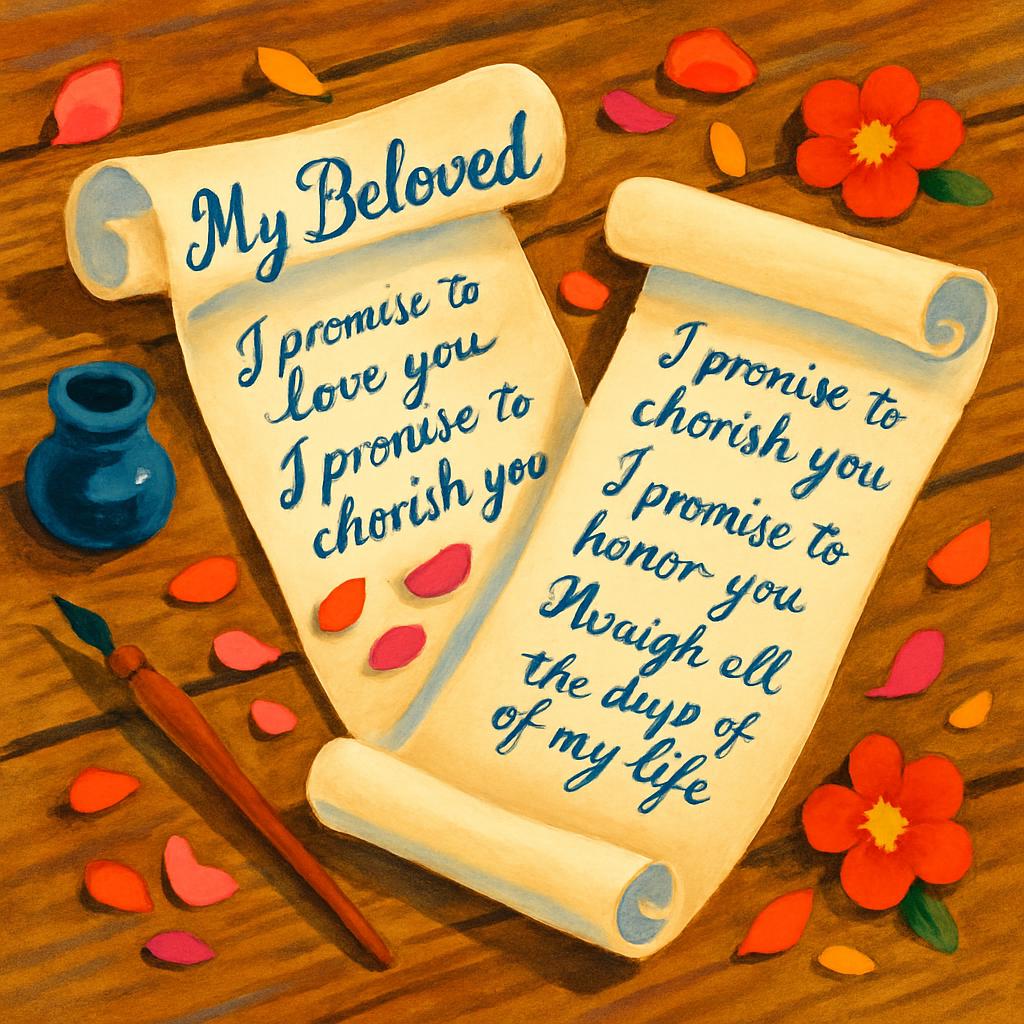 My Beloved
I promise to
love you
I pronise to
chorish you
I pronise to
chorish you
I promise to
honor you
Nvaigh ell
the duyp of
of my life